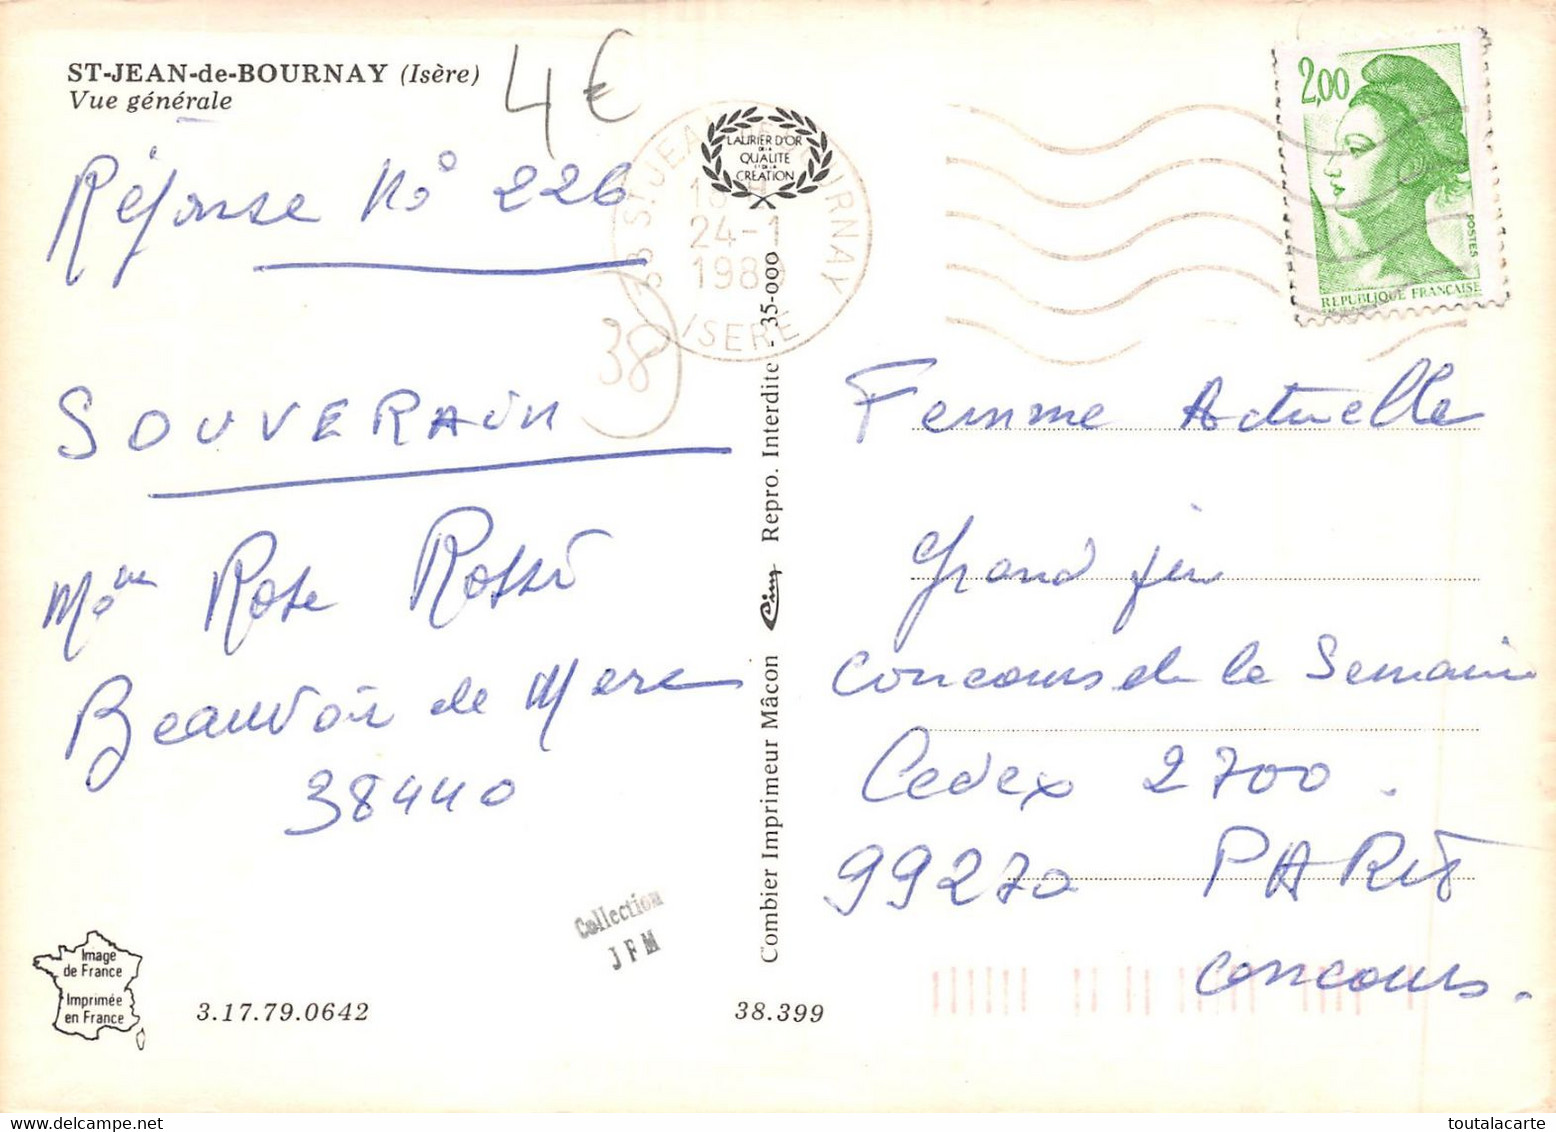 ST-JEAN-de-BOURNAY (Isère)
Vue générale
4€
Réponse No 226
SOUVERAIN
Mme Rose Rossi
Beauvoir de Marc
38440
38
38 ST JEAN DE BOURNAY
18 H
24-1
1989
ISERE
LAURIER D'OR
DE LA
QUALITE
ET DE LA
CREATION
Combier Imprimeur Mâcon Cim Repro. Interdite - 35-000
2,00
POSTES
REPUBLIQUE FRANÇAISE
Femme Actuelle
grand jeu
Concours de la Semaine
Cedex 2700.
99270 PARIS
Concours.
Collection
JFM
Image
de France
Imprimée
en France
3.17.79.0642
38.399
toutalacarte